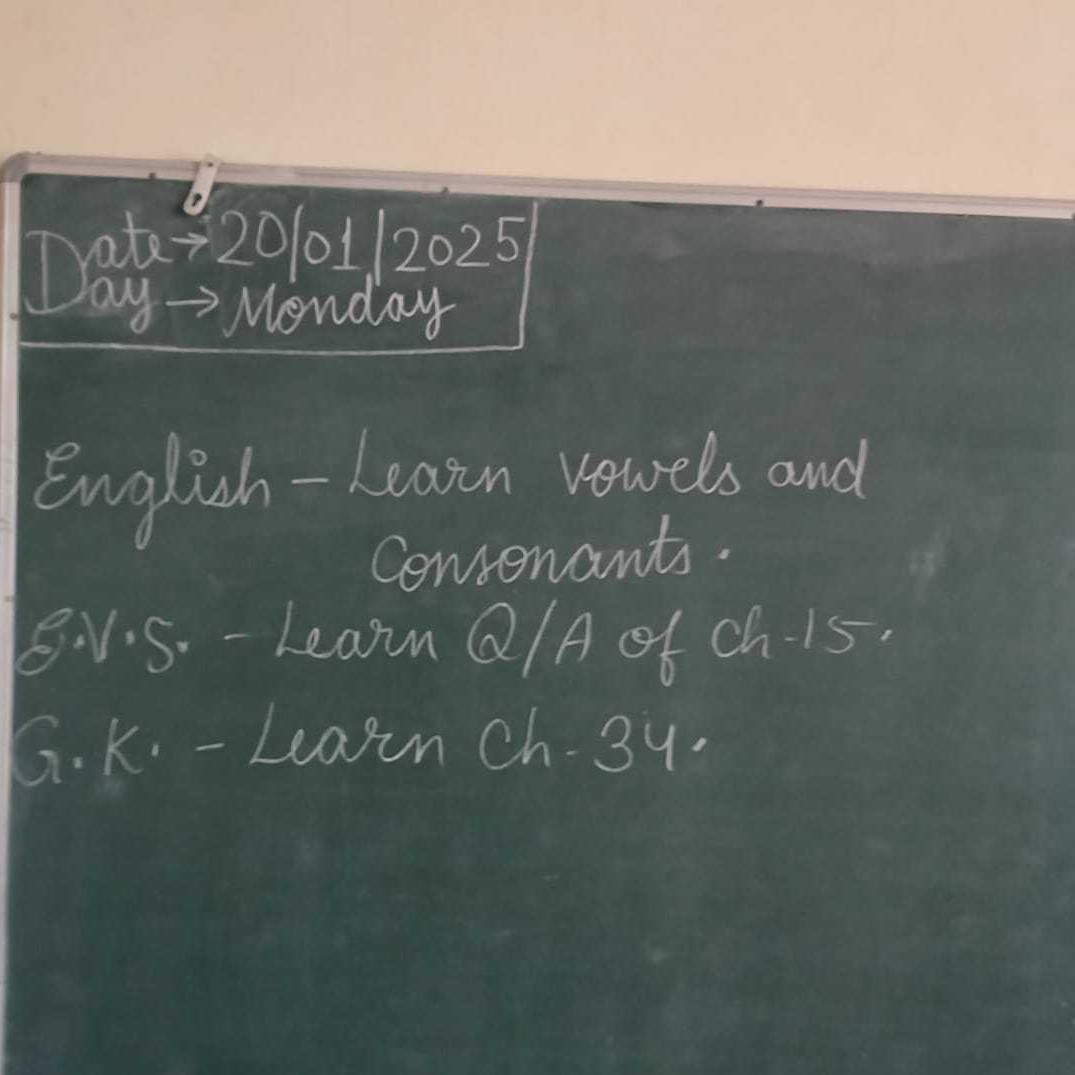 Date→20/01/2025
Day→Monday
English - Learn vowels and
Consonants.
E.V.S. - Learn Q/A of Ch-15.
G.K. - Learn Ch-34.